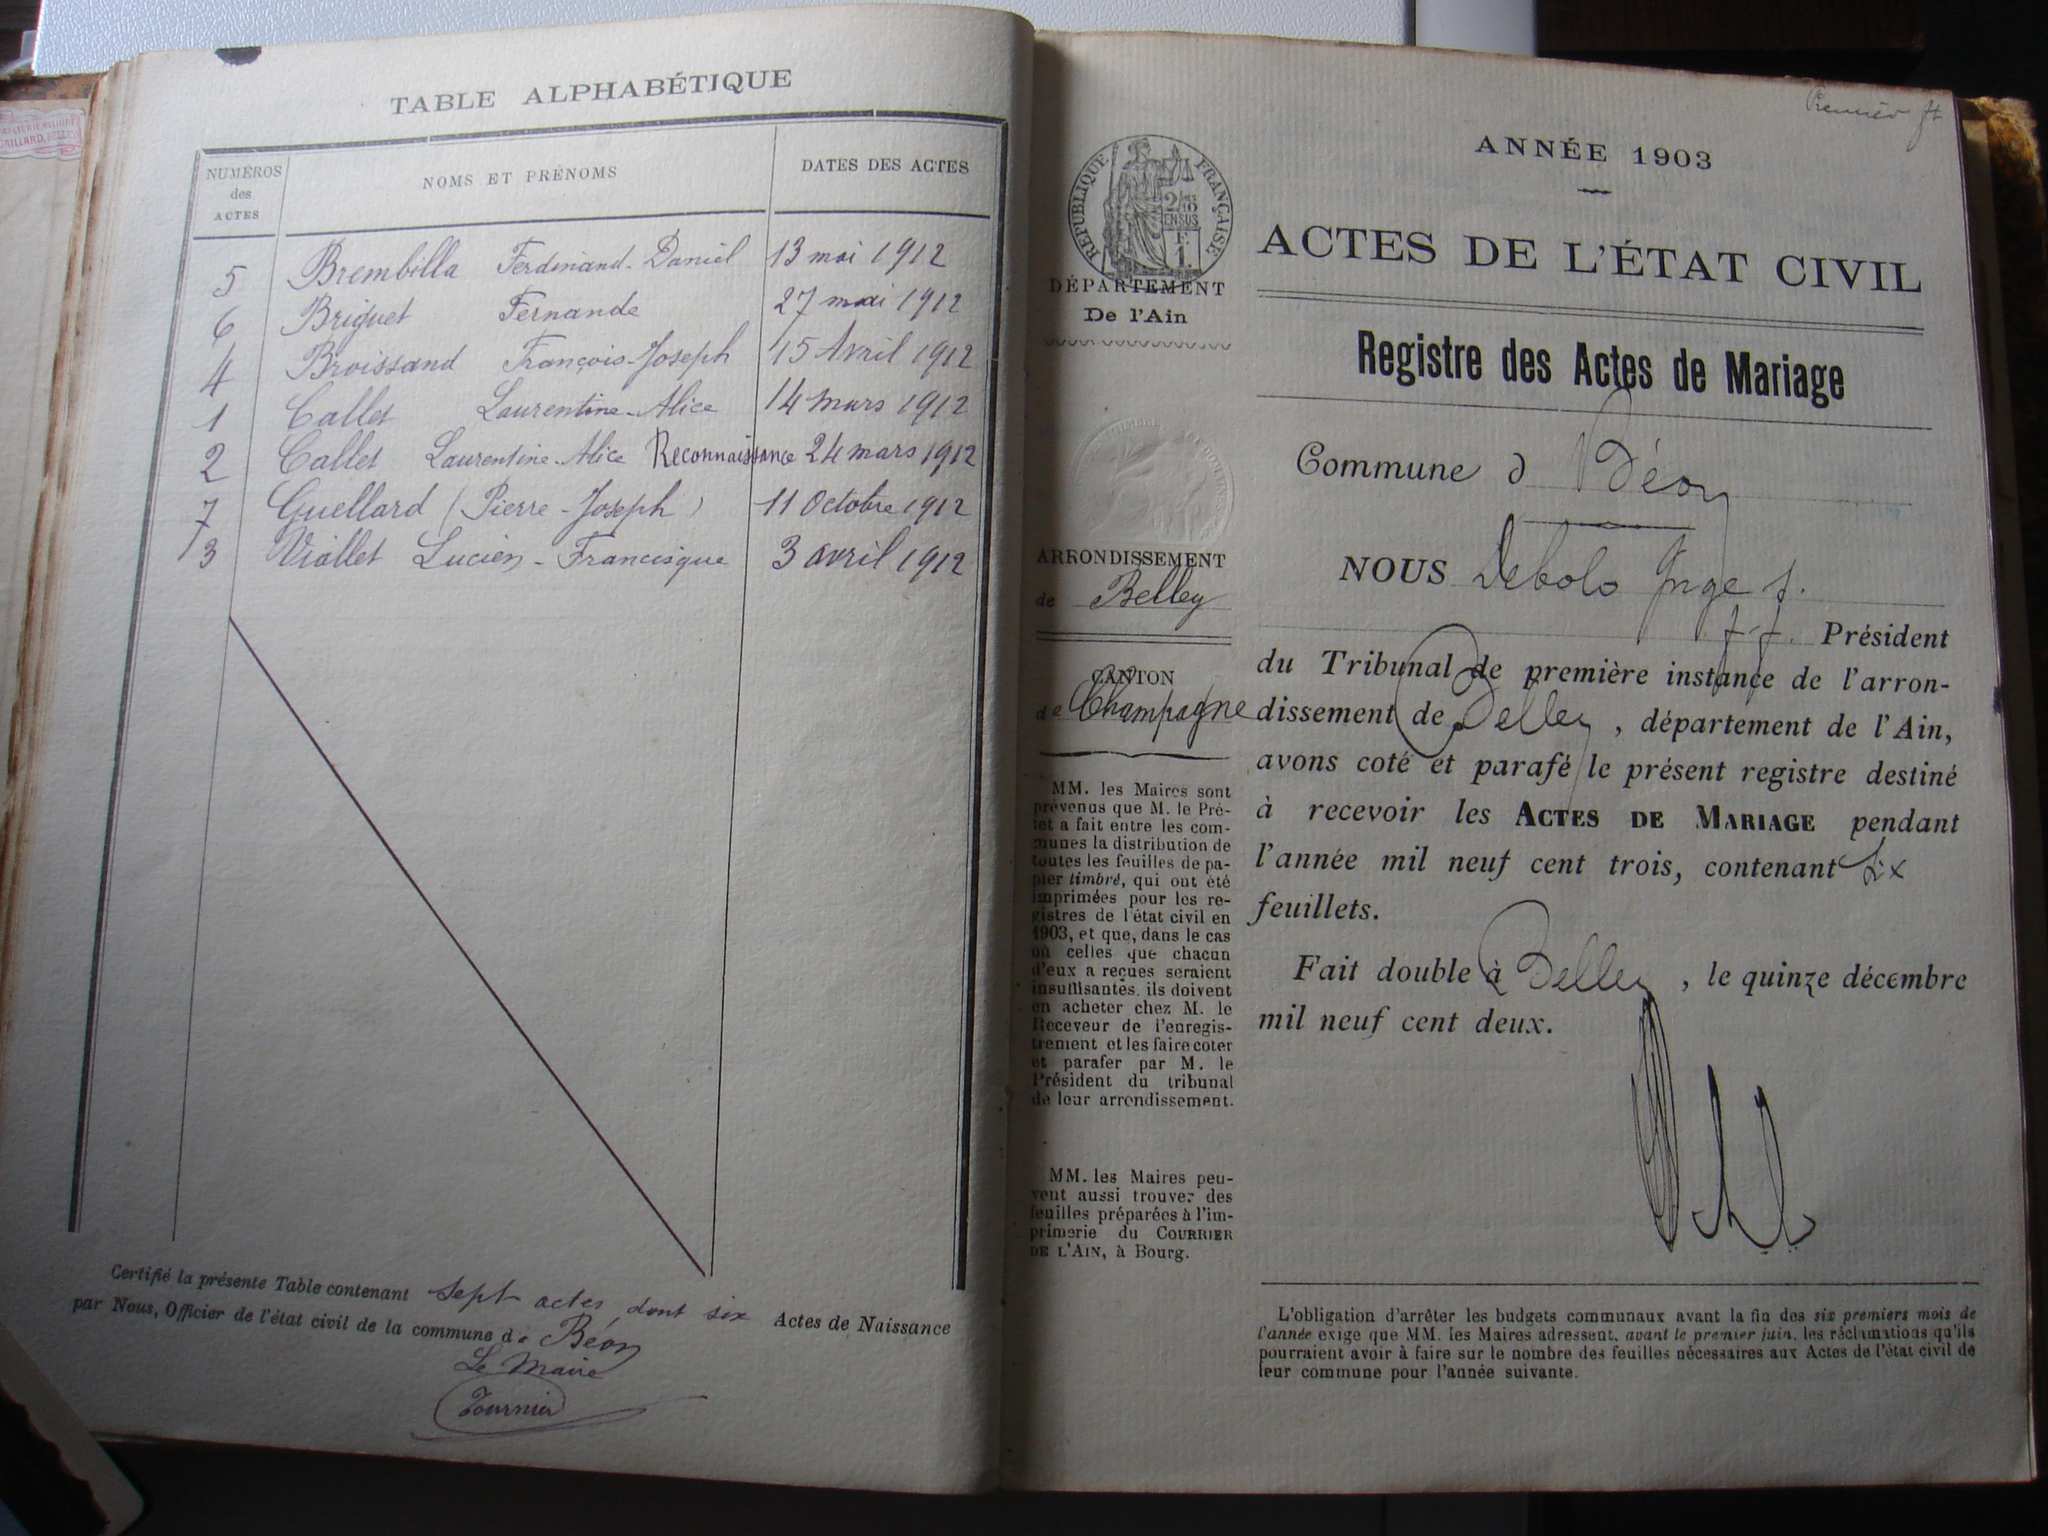 TABLE ALPHABÉTIQUE
NUMÉROS des ACTES
NOMS ET PRÉNOMS
DATES DES ACTES
5 Brembilla Ferdinand-Daniel 13 mai 1912
6 Briguet Fernande 27 mai 1912
4 Broissand François-Joseph 15 Avril 1912
1 Callet Laurentine-Alice 14 mars 1912
2 Callet Laurentine-Alice Reconnaissance 24 mars 1912
7 Guellard (Pierre-Joseph) 11 Octobre 1912
3 Viallet Lucien-Francisque 3 avril 1912
Certifié la présente Table contenant sept actes dont six Actes de Naissance
par Nous, Officier de l'état civil de la commune de Béon
Le Maire
Tournier
Premier
RÉPUBLIQUE FRANÇAISE
DÉPARTEMENT
De l'Ain
ARRONDISSEMENT
de Belley
CANTON
de Champagne
MM. les Maires sont
prévenus que M. le Pré-
fet a fait entre les com-
munes la distribution de
toutes les feuilles de pa-
pier timbré, qui ont été
imprimées pour les re-
gistres de l'état civil en
1903, et que, dans le cas
où celles que chacun
d'eux a reçues seraient
insuffisantes, ils doivent
en acheter chez M. le
Receveur de l'enregis-
trement et les faire coter
et parafer par M. le
Président du tribunal
de leur arrondissement.
MM. les Maires peu-
vent aussi trouver des
feuilles préparées à l'im-
primerie du COURRIER
DE L'AIN, à Bourg.
ANNÉE 1903
ACTES DE L'ÉTAT CIVIL
Registre des Actes de Mariage
Commune d Béon
NOUS
f. f. Président
du Tribunal de première instance de l'arron-
dissement de Belley, département de l'Ain,
avons coté et parafé le présent registre destiné
à recevoir les ACTES DE MARIAGE pendant
l'année mil neuf cent trois, contenant six
feuillets.
Fait double à Belley, le quinze décembre
mil neuf cent deux.
L'obligation d'arrêter les budgets communaux avant la fin des six premiers mois de
l'année exige que MM. les Maires adressent, avant le premier juin, les réclamations qu'ils
pourraient avoir à faire sur le nombre des feuilles nécessaires aux Actes de l'état civil de
leur commune pour l'année suivante.